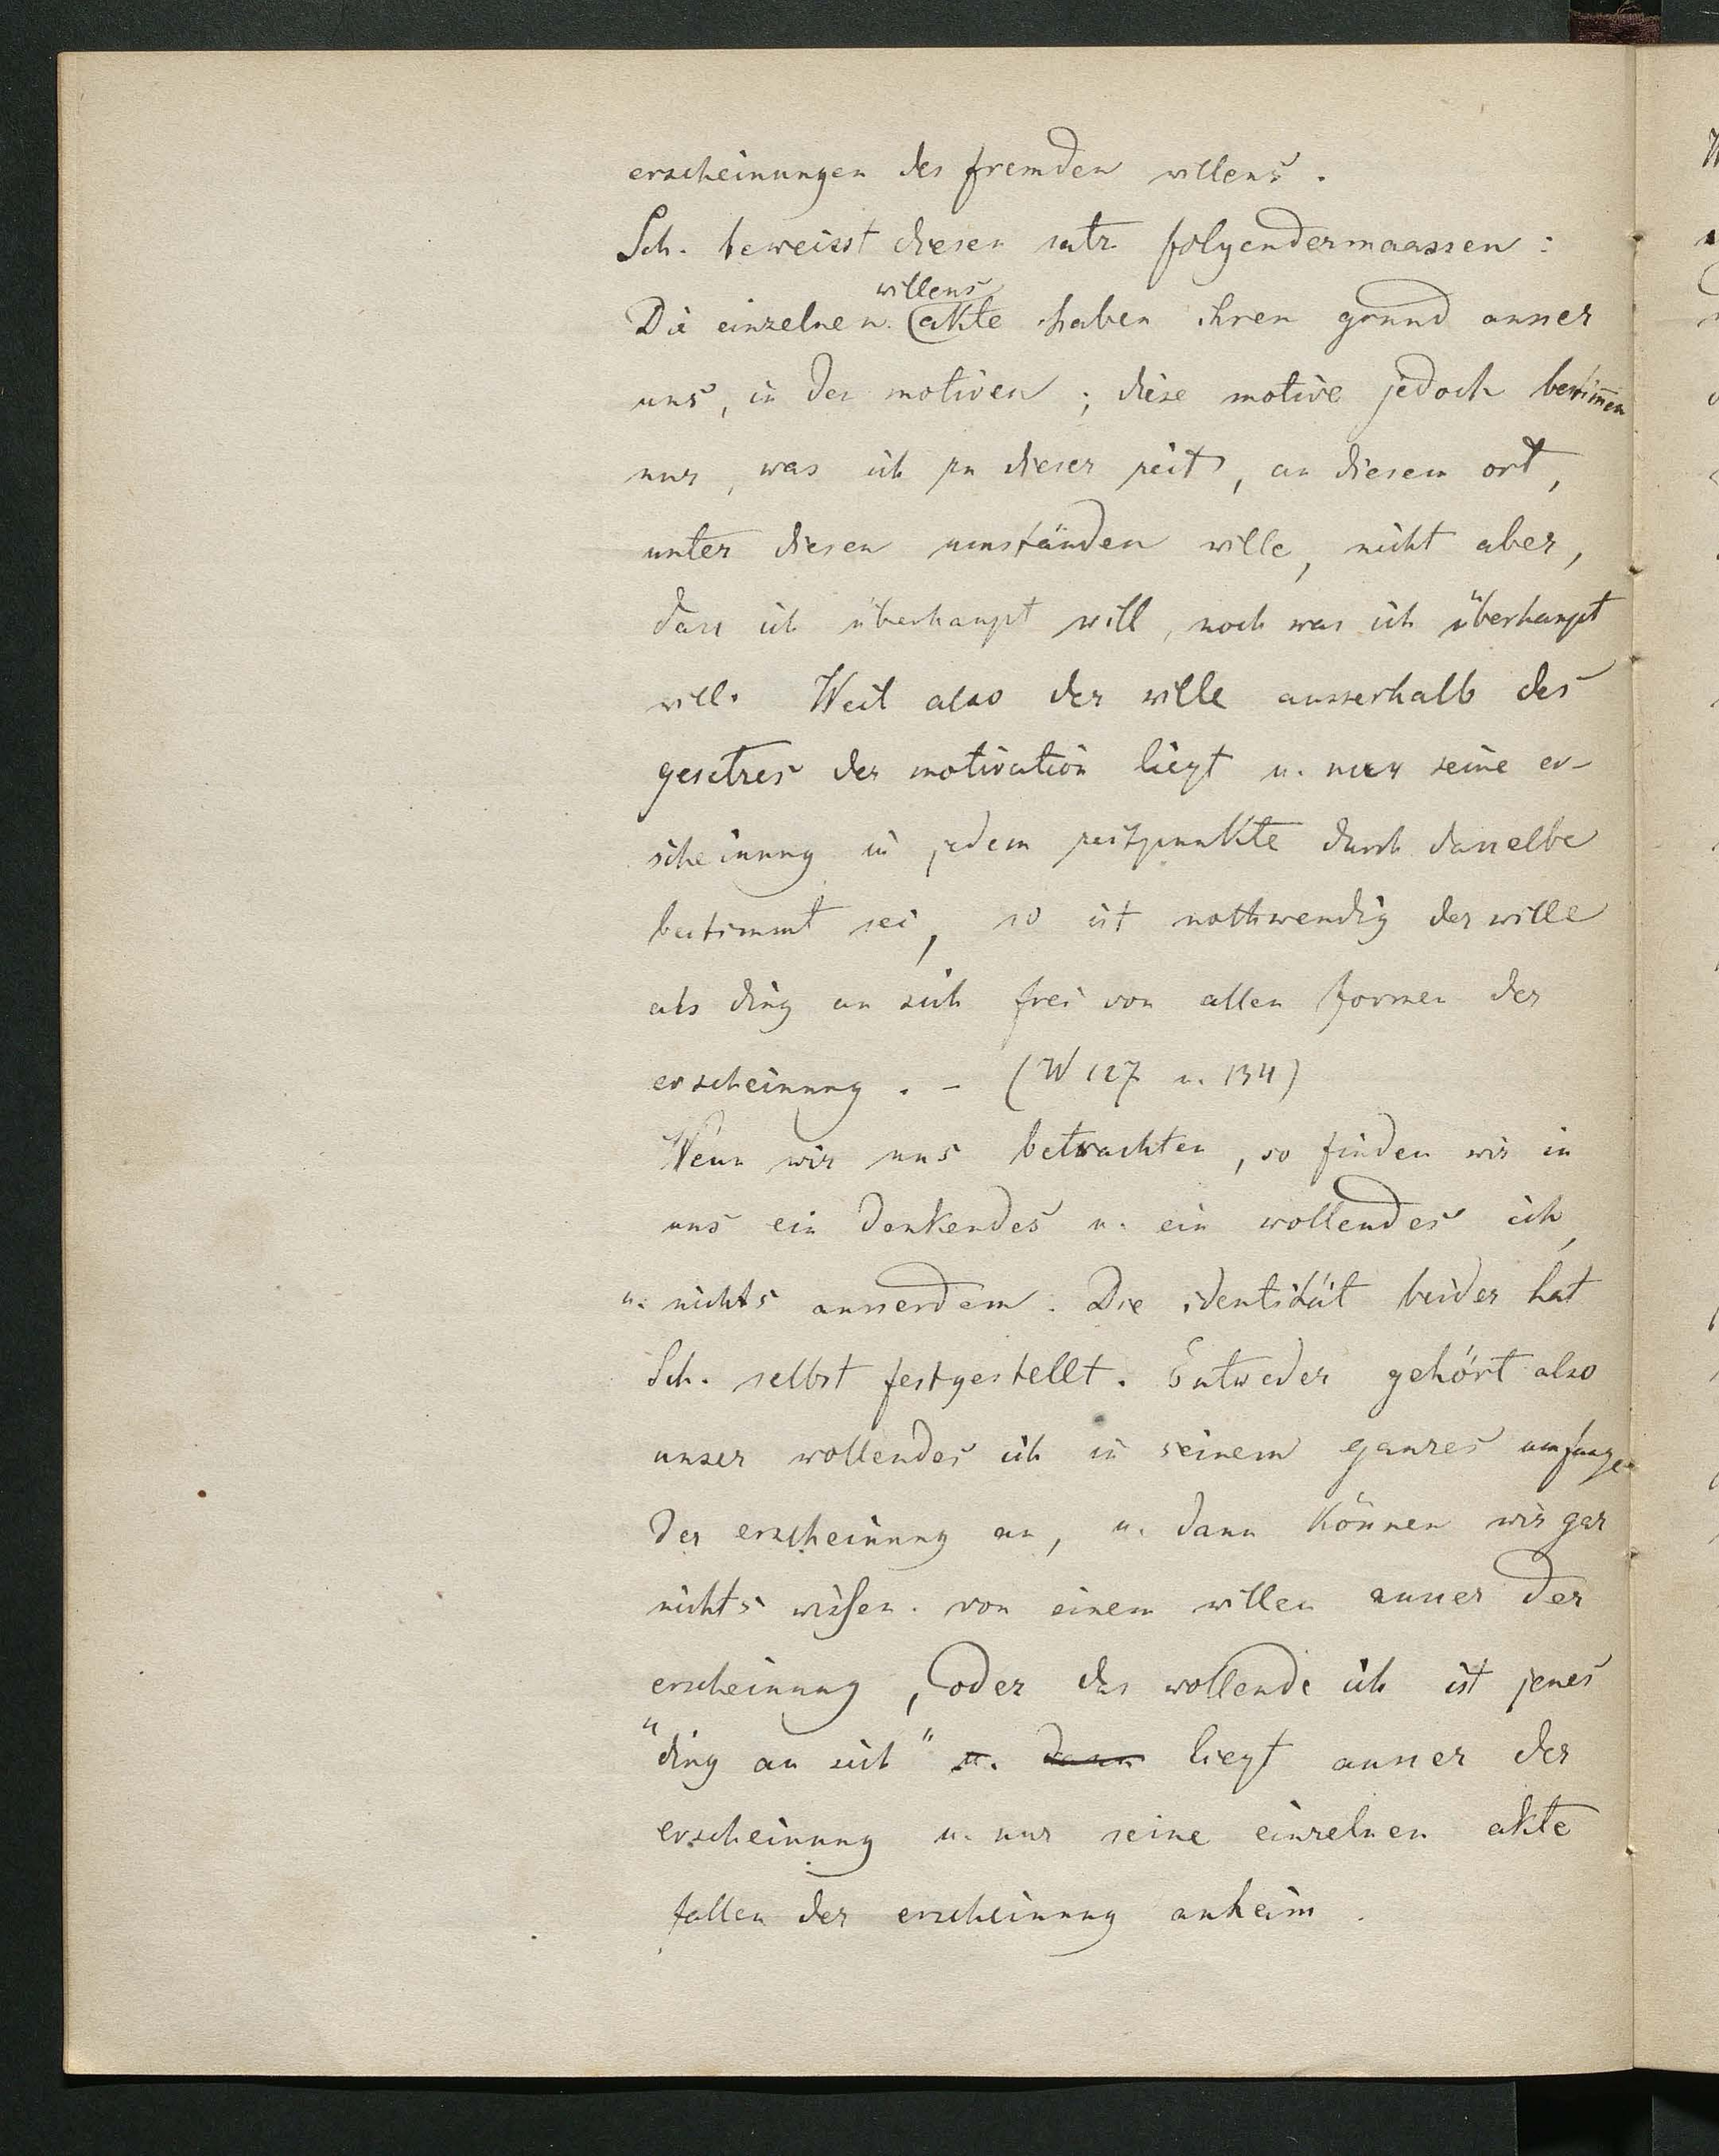 erscheinungen des fremden willens.
Sch. beweisst diesen satz folgendermaassen:
willens
Die einzelnen akte haben ihren grund ausser
uns, in den motiven; diese motive jedoch bestim̅en
nur, was ich zu dieser zeit, an diesem ort,
unter diesen umständen wille, nicht aber,
dass ich überhaupt will, noch was ich überhaupt
will. Weil also der wille ausserhalb des
gesetzes der motivation liegt u. nur seine er-
scheinung in jedem zeitpunkte durch dasselbe
bestimmt sei, so ist nothwendig der wille
als ding an sich frei von allen formen der
erscheinung. - (W 127 u. 134)
Wenn wir uns betrachten, so finden wir in
uns ein denkendes u. ein wollendes ich,
u. nichts ausserdem. Die identität beider hat
Sch. selbst festgestellt. Entweder gehört also
unser wollendes ich in seinem ganzes umfange
der erscheinung an, u. dann können wir gar
nichts wissen von einem willen ausser der
erscheinung, oder das wollende ich ist jenes
"ding an sich" u. dann liegt ausser der
erscheinung u. nur seine einzelnen akte
fallen der erscheinung anheim.